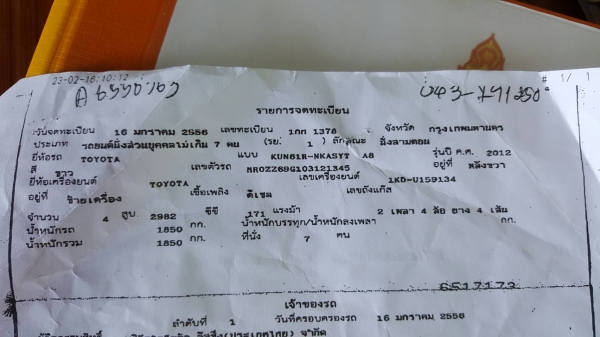 23-02-16:10:12 # 1/ 1
รายการจดทะเบียน
วันจดทะเบียน 16 มกราคม 2556 เลขทะเบียน 1กก 1378 จังหวัด กรุงเทพมหานคร
ประเภท รถยนต์นั่งส่วนบุคคลไม่เกิน 7 คน (รย. 1 ) ลักษณะ นั่งสามตอน
ยี่ห้อรถ TOYOTA แบบ KUN61R-NKASYT A8 รุ่นปี ค.ศ. 2012
สี ขาว เลขตัวรถ MR0ZZ69G103121345 อยู่ที่ หลังขวา
ยี่ห้อเครื่องยนต์ TOYOTA เลขเครื่องยนต์ 1KD-U159134
อยู่ที่ ซ้ายเครื่อง เชื้อเพลิง ดีเซล เลขถังแก๊ส
จำนวน 4 สูบ 2982 ซีซี 171 แรงม้า 2 เพลา 4 ล้อ ยาง 4 เส้น
น้ำหนักรถ 1850 กก. น้ำหนักบรรทุก/น้ำหนักลงเพลา กก.
น้ำหนักรวม 1850 กก. ที่นั่ง 7 คน
6517173
เจ้าของรถ
ลำดับที่ 1 วันที่ครอบครองรถ 16 มกราคม 2556
(ประเทศไทย) จำกัด